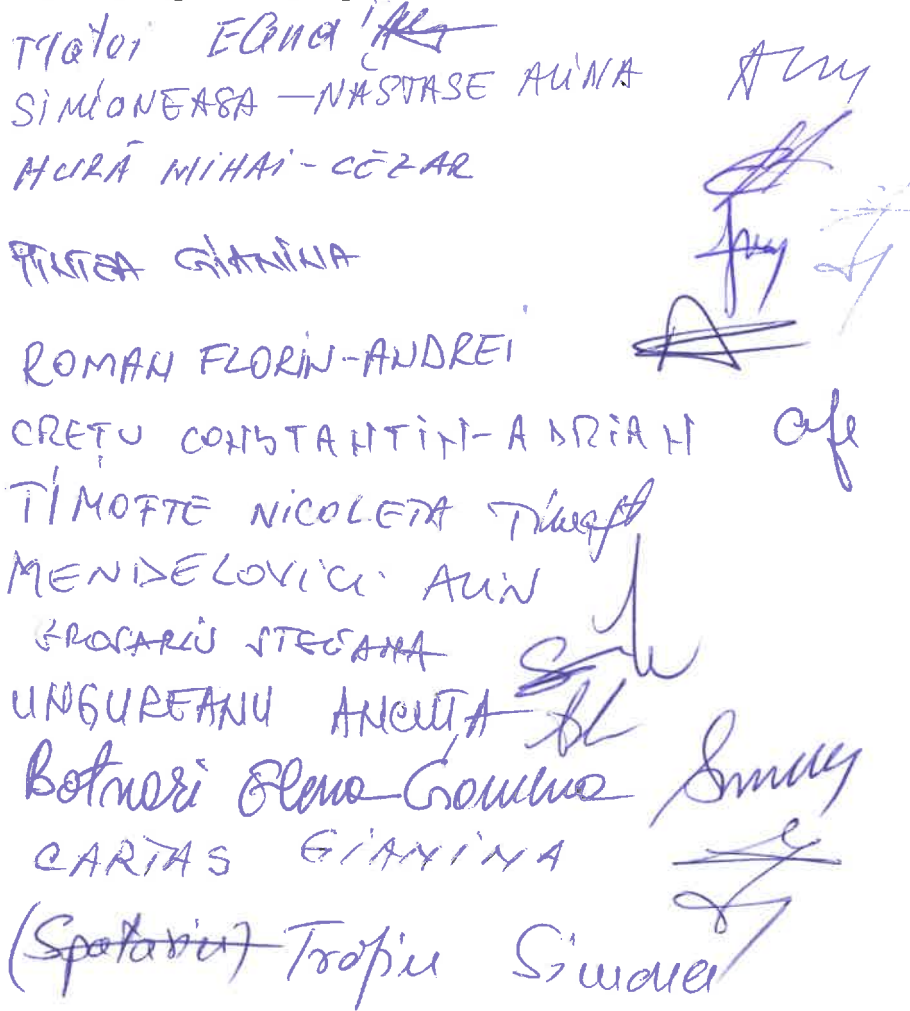 Matei Elena
SIMIONEASA - NĂSTASE ALINA
HURĂ MIHAI - CEZAR
PINTEA GIANINA
ROMAN FLORIN-ANDREI
CREȚU CONSTANTIN-ADRIAN
TIMOFTE NICOLETA
MENDELOVICI ALIN
GROSARIU STEFANA
UNGUREANU ANCUȚA
Botnari Elena
CARTAS GIANINA
(Spatariu) Trofin Simona